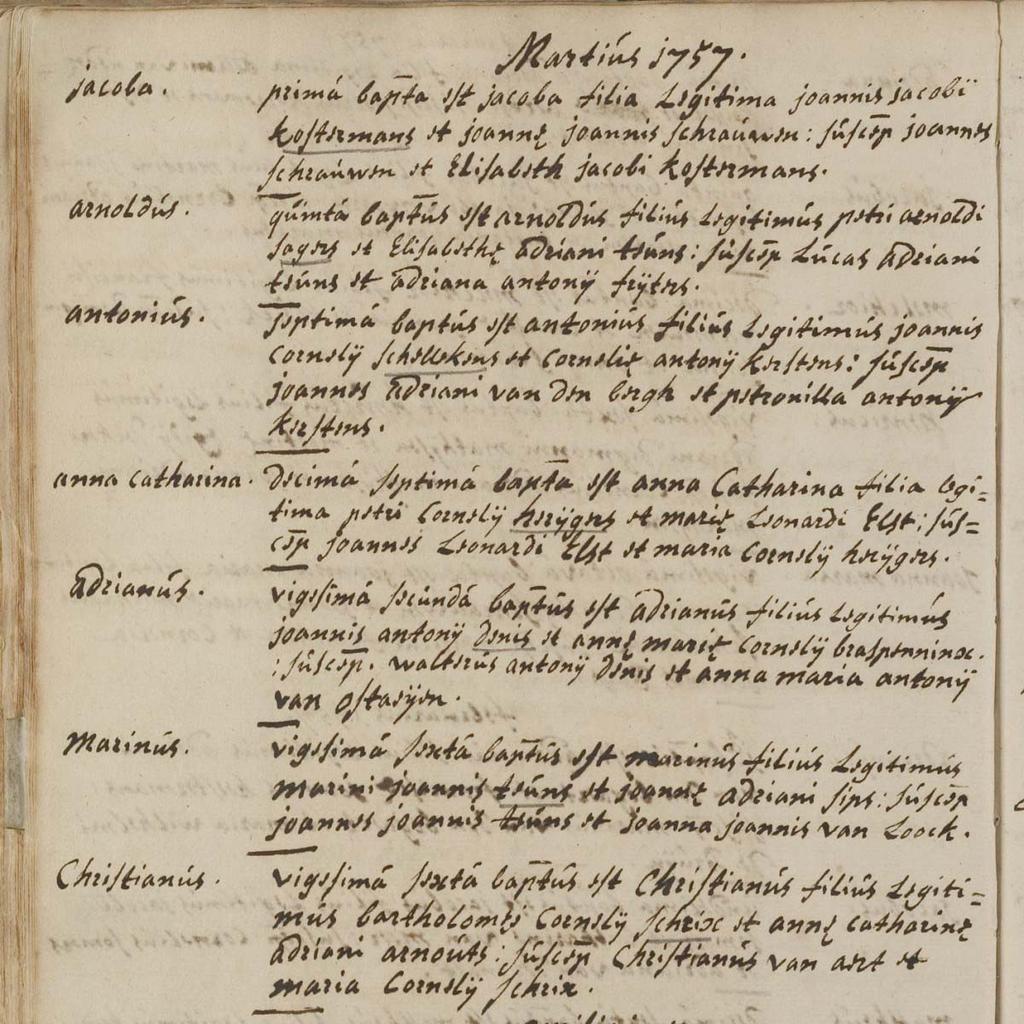 Martiús 1757.
jacoba. primá bapta est jacoba filia Legitima joannis jacobi
kostermans et joannę joannis schraúwen: súscep joannes
schraúwen et Elisabeth jacobi kostermans.
arnoldús. qúintá baptús est arnoldús filiús Legitimús petri arnoldi
sagers et Elisabethę adriani teúns: súscep Lúcas adriani
teúns et adriana antonÿ frÿters.
antoniús. septimá baptús est antoniús filiús Legitimús joannis
Cornelÿ schellekens et Cornelię antonÿ kerstens: súscep
joannes adriani van den bergh et petronilla antonÿ
kerstens.
anna Catharina. decimá septimá bapta est anna Catharina filia legi=
tima petri Cornelÿ herÿgers et marię Leonardi Elst: sús=
cep joannes Leonardi Elst et maria Cornelÿ herÿgers.
adrianús. vigesimá secúndá baptús est adrianús filiús Legitimús
joannis antonÿ denis et annę marię Cornelÿ braspenninx.
: súscep. walterús antonÿ denis et anna maria antonÿ
van ostaeÿen.
Marinús. vigesimá sextá baptús est marinús filiús Legitimús
marini joannis teúns et joannę adriani sips: súscep
joannes joannis teúns et joanna joannis van Loock.
Christianús. vigesimá sextá baptús est Christianús filiús Legiti=
mús bartholomęi Cornelÿ schrix et annę catharinę
adriani arnoúts: súscep Christianús van aert et
maria Cornelÿ schrix.